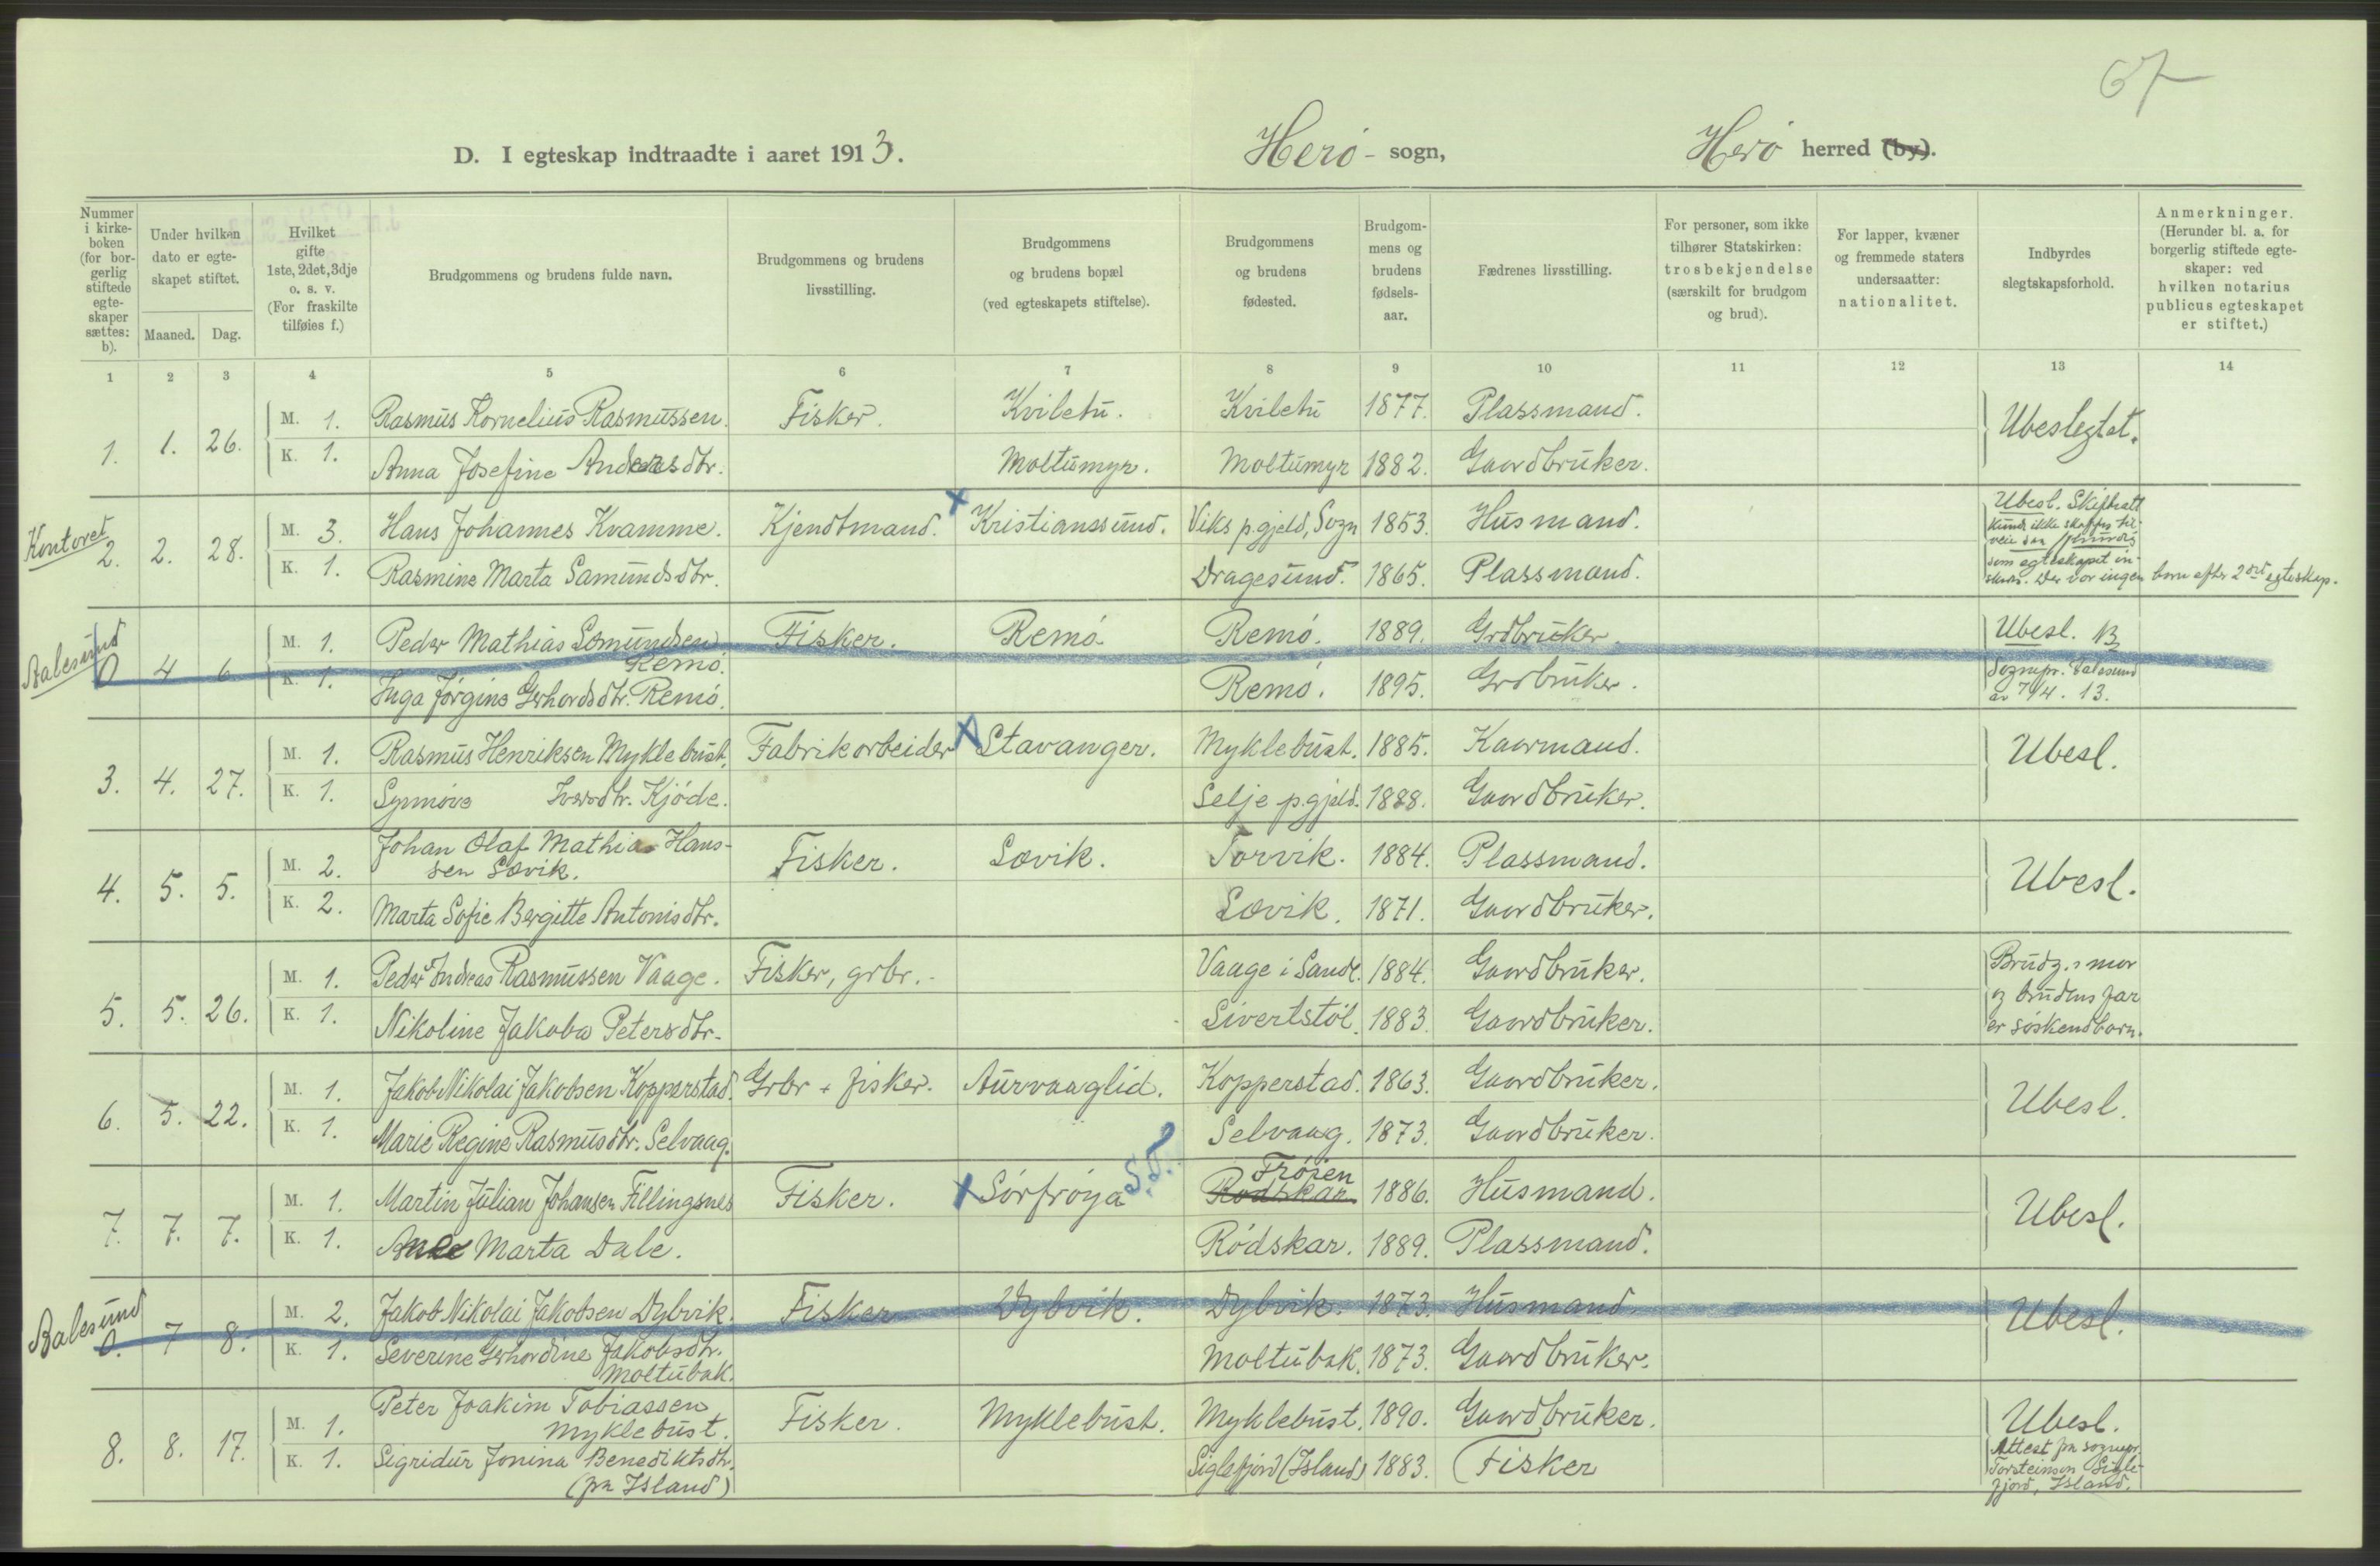 67
D. I egteskap indtraadte i aaret 1913. Herö - sogn, Herö herred (by).
Nummer i kirkeboken (for borgerlig stiftede egteskaper sættes: b).
Under hvilken dato er egteskapet stiftet.
Maaned. Dag.
Hvilket gifte 1ste, 2det, 3dje o. s. v. (For fraskilte tilføies f.)
Brudgommens og brudens fulde navn.
Brudgommens og brudens livsstilling.
Brudgommens og brudens bopæl (ved egteskapets stiftelse).
Brudgommens og brudens fødested.
Brudgommens og brudens fødselsaar.
Fædrenes livsstilling.
For personer, som ikke tilhører Statskirken: trosbekjendelse (særskilt for brudgom og brud).
For lapper, kvæner og fremmede staters undersaatter: nationalitet.
Indbyrdes slegtskapsforhold.
Anmerkninger. (Herunder bl. a. for borgerlig stiftede egteskaper: ved hvilken notarius publicus egteskapet er stiftet.)
1 2 3 4 5 6 7 8 9 10 11 12 13 14
1. 1. 26. M. 1. Rasmus Kornelius Rasmussen. Fisker. Kviletu. Kviletu 1877. Plassmand. Ubeslegtet.
K. 1. Anna Josefine Andersdtr. Moltumyr. Moltumyr 1882. Gaardbruker.
Kontoret
2. 2. 28. M. 3. Hans Johannes Kvamme. Kjendtmand. x Kristianssund. Viks p.gjeld, Sogn 1853. Husmand. Ubesl. Skifteatt
kunde ikke skaffes til
veie
K. 1. Rasmine Marta Samundsdtr. Dragesund. 1865. Plassmand. som egteskapet
Der var ingen barn efter 2det egteskap.
Aalesund
0 4 6 M. 1. Peder Mathias Somundsen Remö. Fisker. Remö. Remö. 1889. Grdbruker. Ubesl.
K. 1. Inga Jörgine Gerhardsdtr. Remö. Remö. 1895. Grdbruker. Sognepr. Aalesund
av 7/4. 13.
3. 4. 27. M. 1. Rasmus Henriksen Myklebust. Fabrikarbeider x Stavanger. Myklebust. 1885. Kaarmand. Ubesl.
K. 1. Synnöve Iversdtr. Kjöde. Selje p.gjeld. 1888. Gaardbruker.
4. 5. 5. M. 2. Johan Olaf Mathias Hans-
sen Sævik. Fisker. Sævik. Torvik. 1884. Plassmand. Ubesl.
K. 2. Marta Sofie Bergitte Antonisdtr. Sævik. 1871. Gaardbruker.
5. 5. 26. M. 1. Peder Andreas Rasmussen Vaage. Fisker, grbr. Vaage i Sande. 1884. Gaardbruker. Brudg.s mor
og brudens far
K. 1. Nikoline Jakoba Petersdtr. Sivertstöl. 1883. Gaardbruker. er söskendbarn.
6. 5. 22. M. 1. Jakob Nikolai Jakobsen Kopperstad. Grbr + fisker. Aurvaaglid. Kopperstad. 1863. Gaardbruker. Ubesl.
K. 1. Marie Regine Rasmusdtr. Selvaag. Selvaag. 1873. Gaardbruker.
7. 7. 7. M. 1. Martin Julian Johansen Fillingsnes Fisker. x Sörfröya S.T. Rödskar Fröien 1886. Husmand. Ubesl.
K. 1. Marta Dale. Rödskar. 1889. Plassmand.
Aalesund
0. 7 8. M. 2. Jakob Nikolai Jakobsen Dybvik. Fisker Dybvik. Dybvik. 1873. Husmand. Ubesl.
K. 1. Severine Gerhardine Jakobsdtr.
Moltubak. Moltubak. 1873. Gaardbruker.
8. 8. 17. M. 1. Peter Joakim Tobiassen
Myklebust. Fisker. Myklebust. Myklebust. 1890. Gaardbruker. Ubesl.
K. 1. Sigridur Jonina Benediktsdtr.
(fra Island) Siglefjord (Island) 1883. Fisker Attest fra sognepr.
Torsteinson Sigle-
fjord, Island.